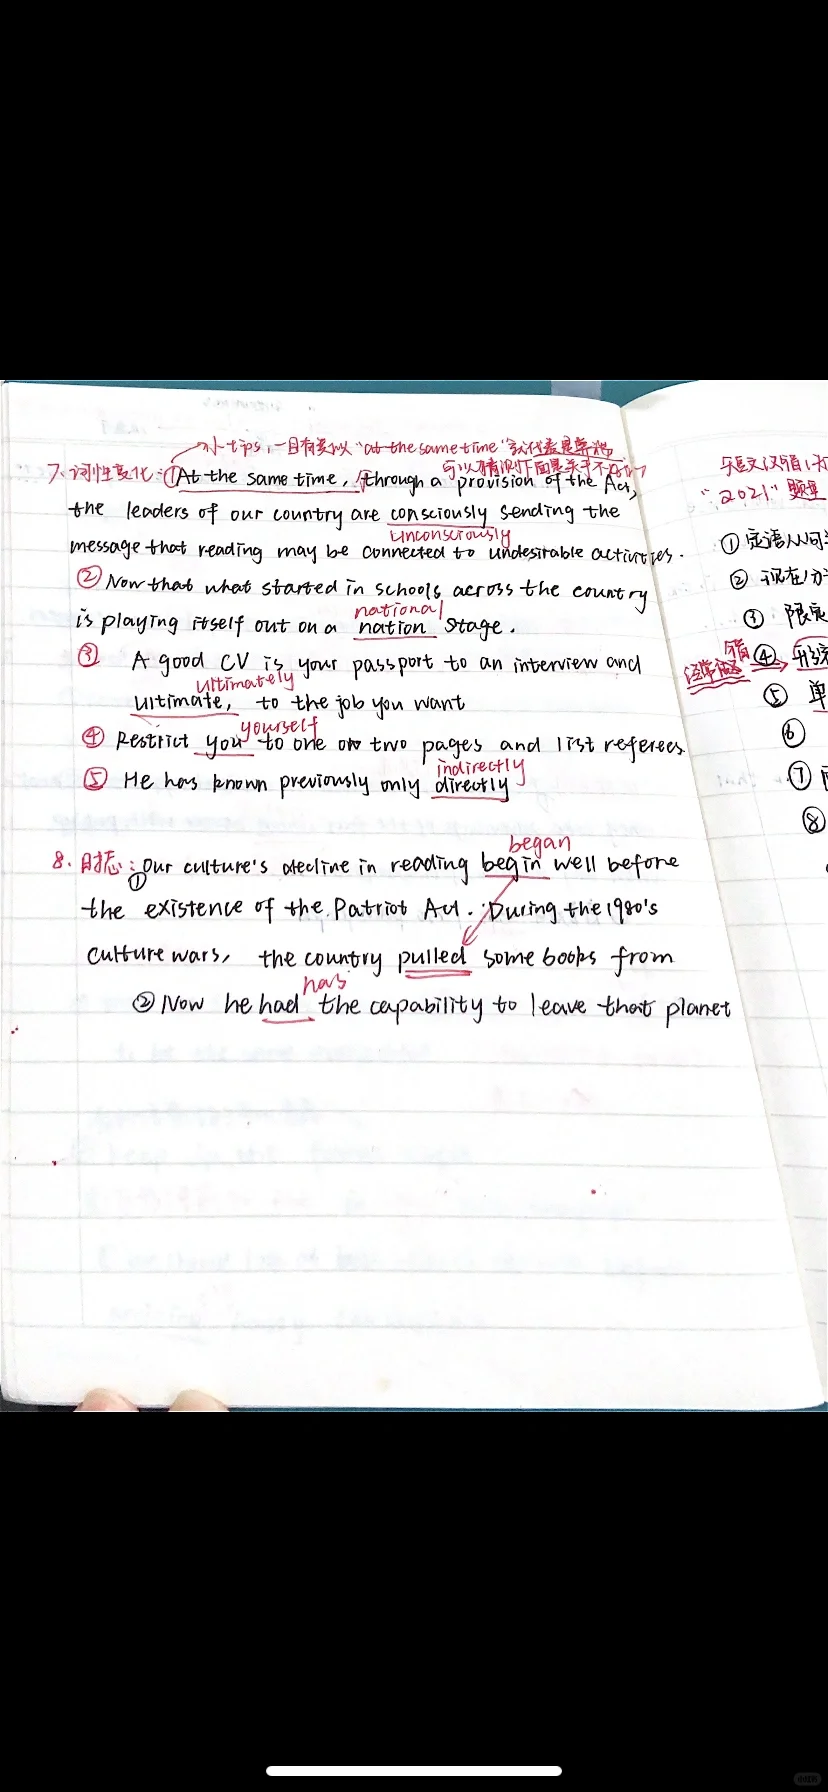 小tips，一旦有类似“at the same time”
7、词性变化：①At the same time, through a provision of the Act,
the leaders of our country are consciously sending the
unconsciously
message that reading may be connected to undesirable activities.
②Now that what started in schools across the country
national
is playing itself out on a nation stage.
③ A good CV is your passport to an interview and
ultimately
ultimate, to the job you want
yourself
④ Restrict you to one or two pages and list referees
indirectly
⑤ He has known previously only directly
began
8. 时态：①Our culture's decline in reading begin well before
the existence of the Patriot Act. During the 1980's
culture wars, the country pulled some books from
has
②Now he had the capability to leave that planet
短文改错
"2021" 题型
① 定语从句
② 现在分
③ 限定
④ 形容
经常
⑤ 单
⑥
⑦
⑧